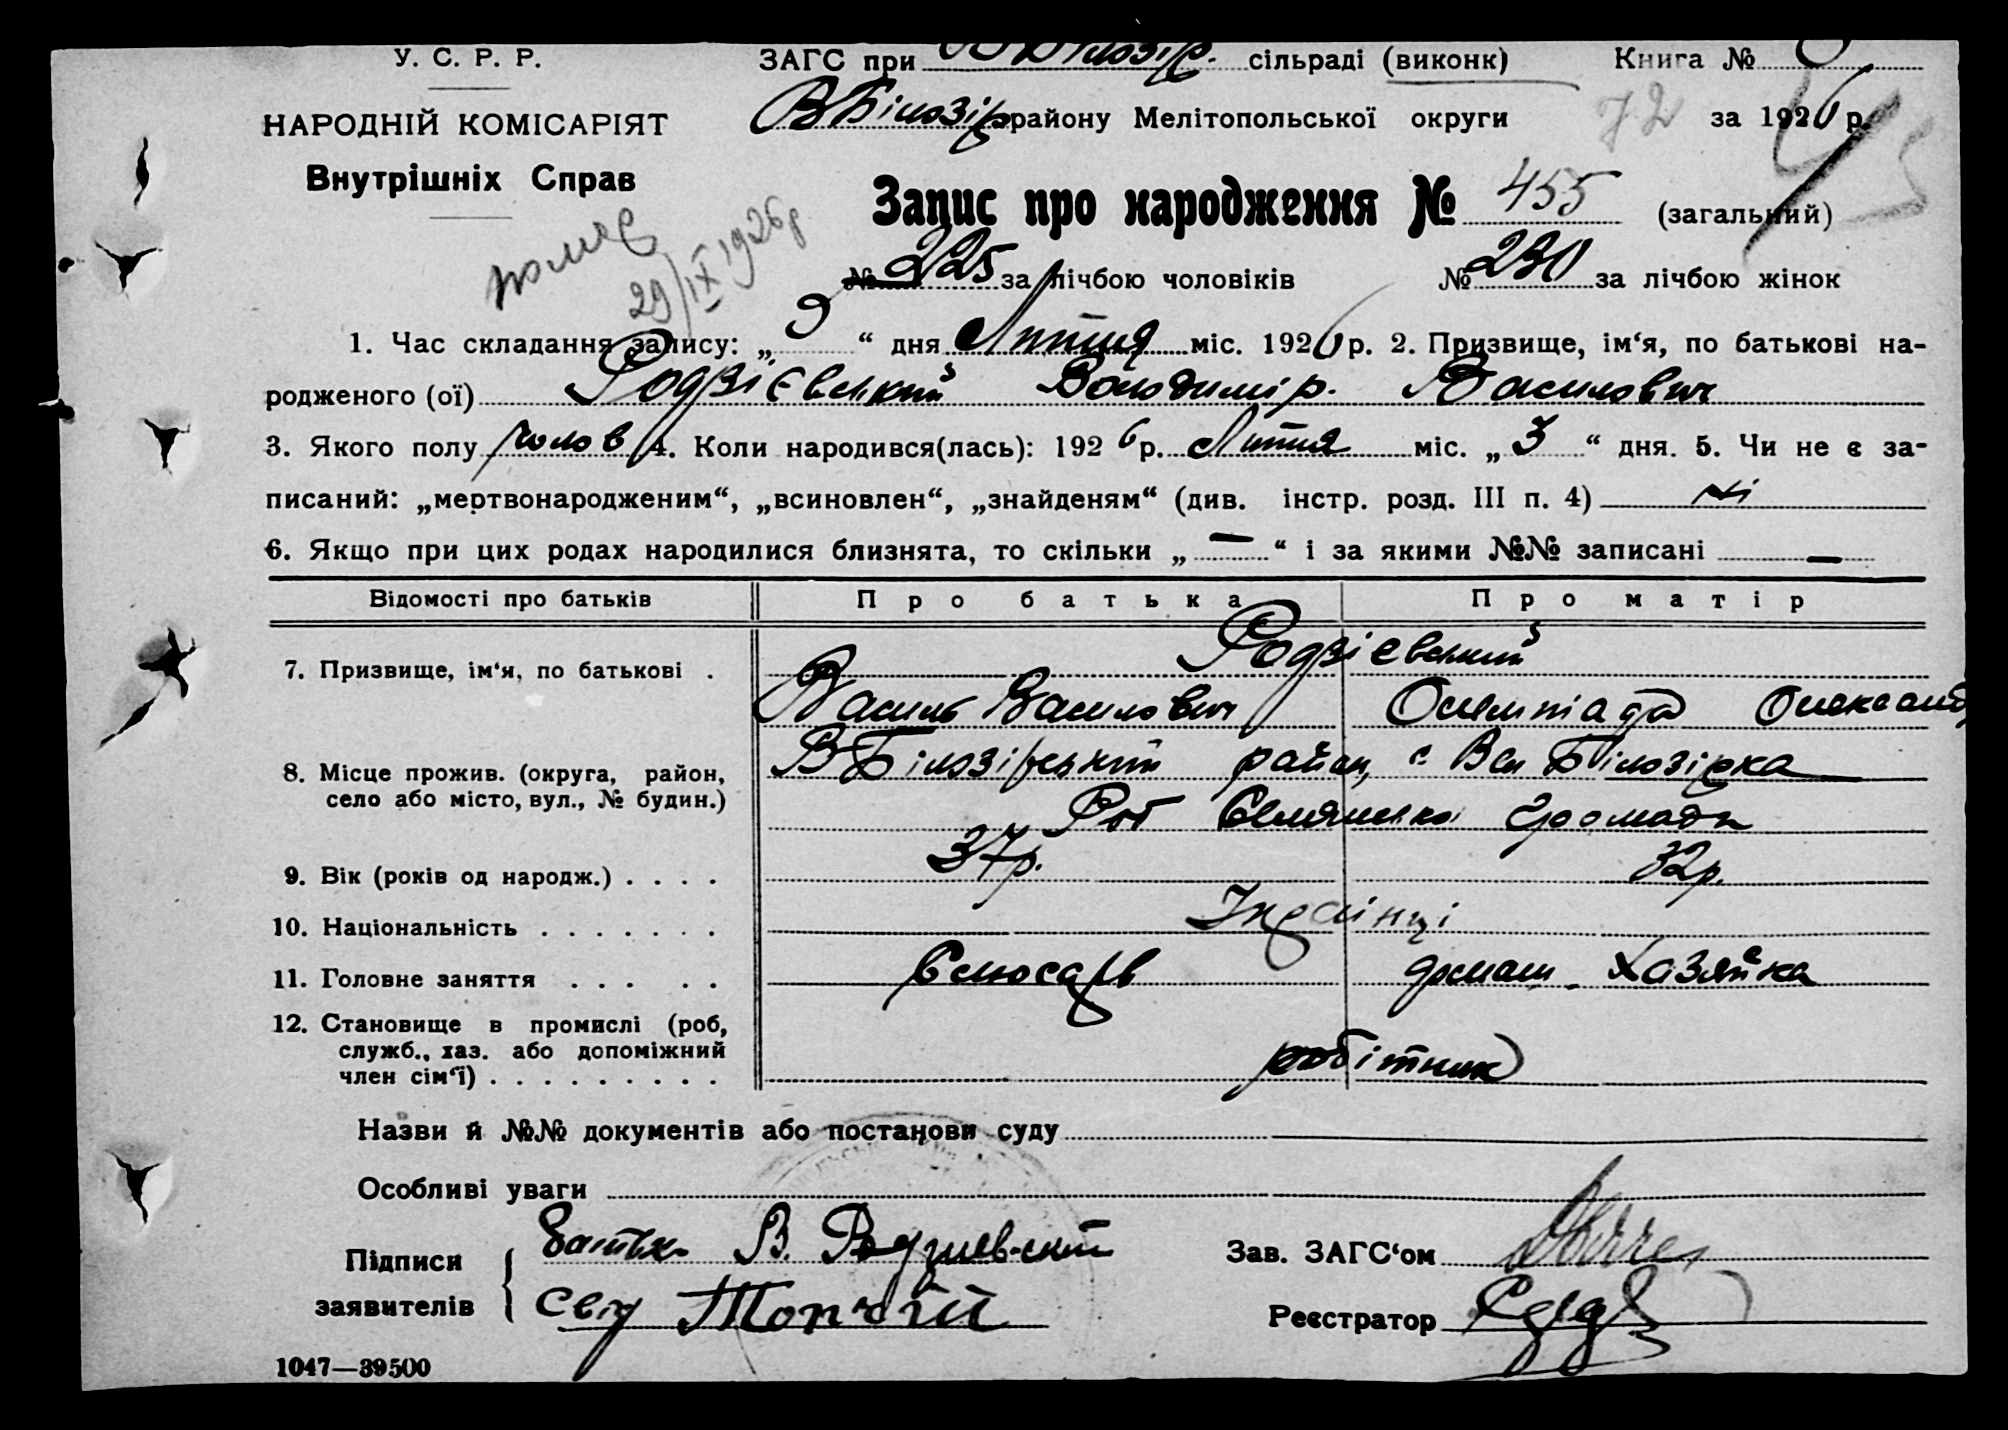 У. С. Р. Р.
НАРОДНІЙ КОМІСАРІЯТ
Внутрішніх Справ
ЗАГС при сільраді (виконк) Книга №
В Білозір району Мелітопольської округи 72 за 1926 р.
Запис про народження № 455 (загальний)
помер
29/IX 1926 р
№ 225 за лічбою чоловіків № 230 за лічбою жінок
1. Час складання запису: „ 9 “ дня Липня міс. 1926 р. 2. Призвище, ім‘я, по батькові на-
родженого (ої) Родзієвський Володимір. Василович
3. Якого полу чолов 4. Коли народився(лась): 1926 р. Липня міс. „ 3 “ дня. 5. Чи не є за-
писаний: „мертвонародженим“, „всиновлен“, „знайденям“ (див. інстр. розд. III п. 4) ні
6. Якщо при цих родах народилися близнята, то скільки „ — “ і за якими №№ записані —
Відомості про батьків Про батька Про матір
7. Призвище, ім‘я, по батькові . Родзієвський
Василь Василович Олімпіада Олександ
8. Місце прожив. (округа, район, село або місто, вул., № будин.) В Білозірський район, с. Вел Білозірка
Громади
9. Вік (років од народж.) . . . . 37р. 32р.
10. Національність . . . . . . . Українці
11. Головне заняття . . . . . Слюсарь домаш. Хазяйка
12. Становище в промислі (роб, служб., хаз. або допоміжний член сім‘ї) . . . . . . . . . робітник
Назви й №№ документів або постанови суду
Особливі уваги
Підписи заявителів батько В. Родзиевский
Свід Топчій
Зав. ЗАГС‘ом
Реєстратор
1047—39500